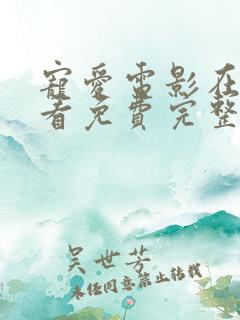 寵愛電影在
看免費完整
吴世芳
未经同意禁止转载